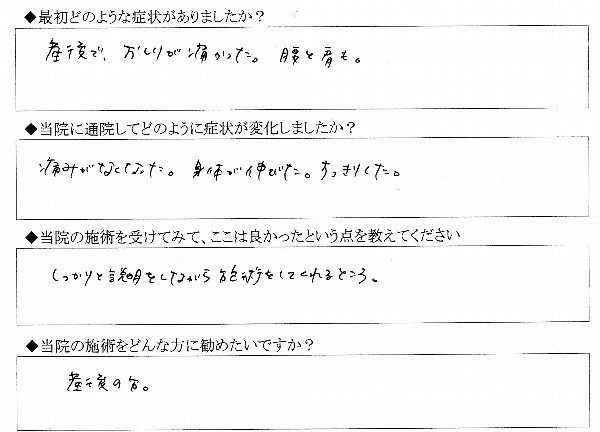 ◆最初どのような症状がありましたか？
産後で、おしりが痛かった。腰と肩も。
◆当院に通院してどのように症状が変化しましたか？
痛みがなくなった。身体が伸びた。すっきりした。
◆当院の施術を受けてみて、ここは良かったという点を教えてください
しっかりと説明をしながら施術をしてくれるところ。
◆当院の施術をどんな方に勧めたいですか？
産後の方。